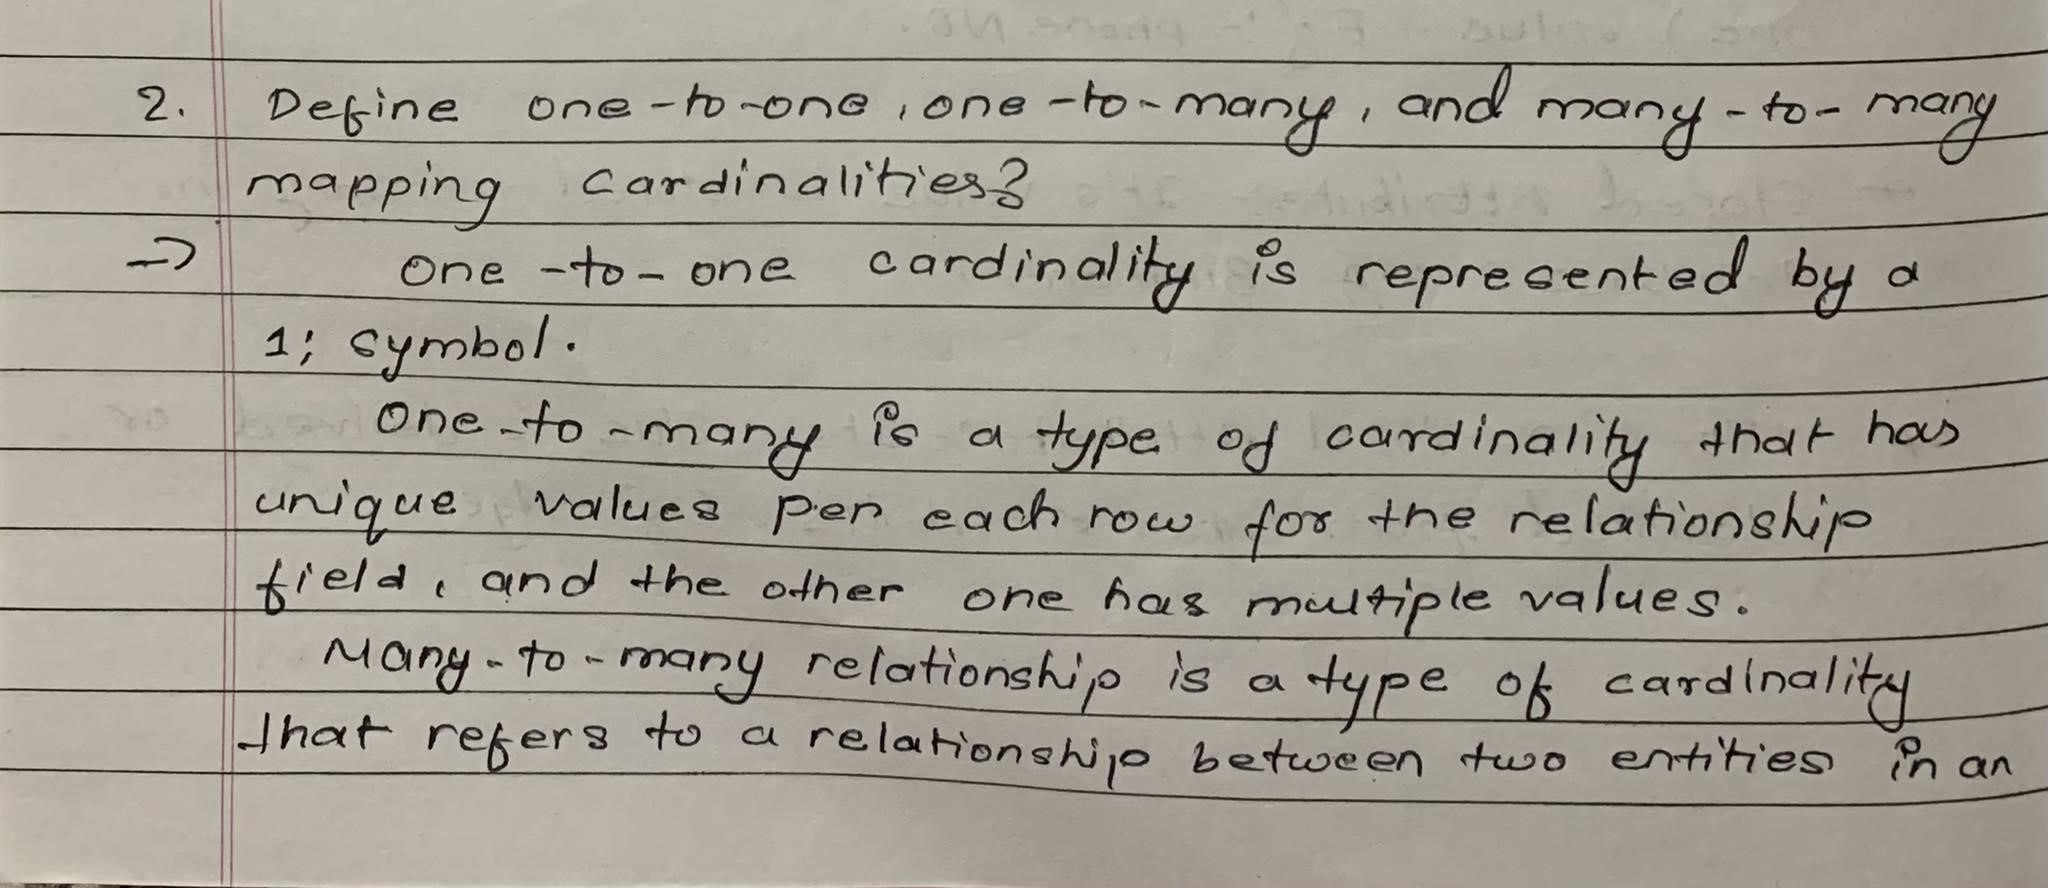 2. Define one-to-one, one-to-many, and many-to-many
mapping cardinalities?
=> one-to-one cardinality is represented by a
1; symbol.
One-to-many is a type of cardinality that has
unique values per each row for the relationship
field, and the other one has multiple values.
Many-to-many relationship is a type of cardinality
that refers to a relationship between two entities in an